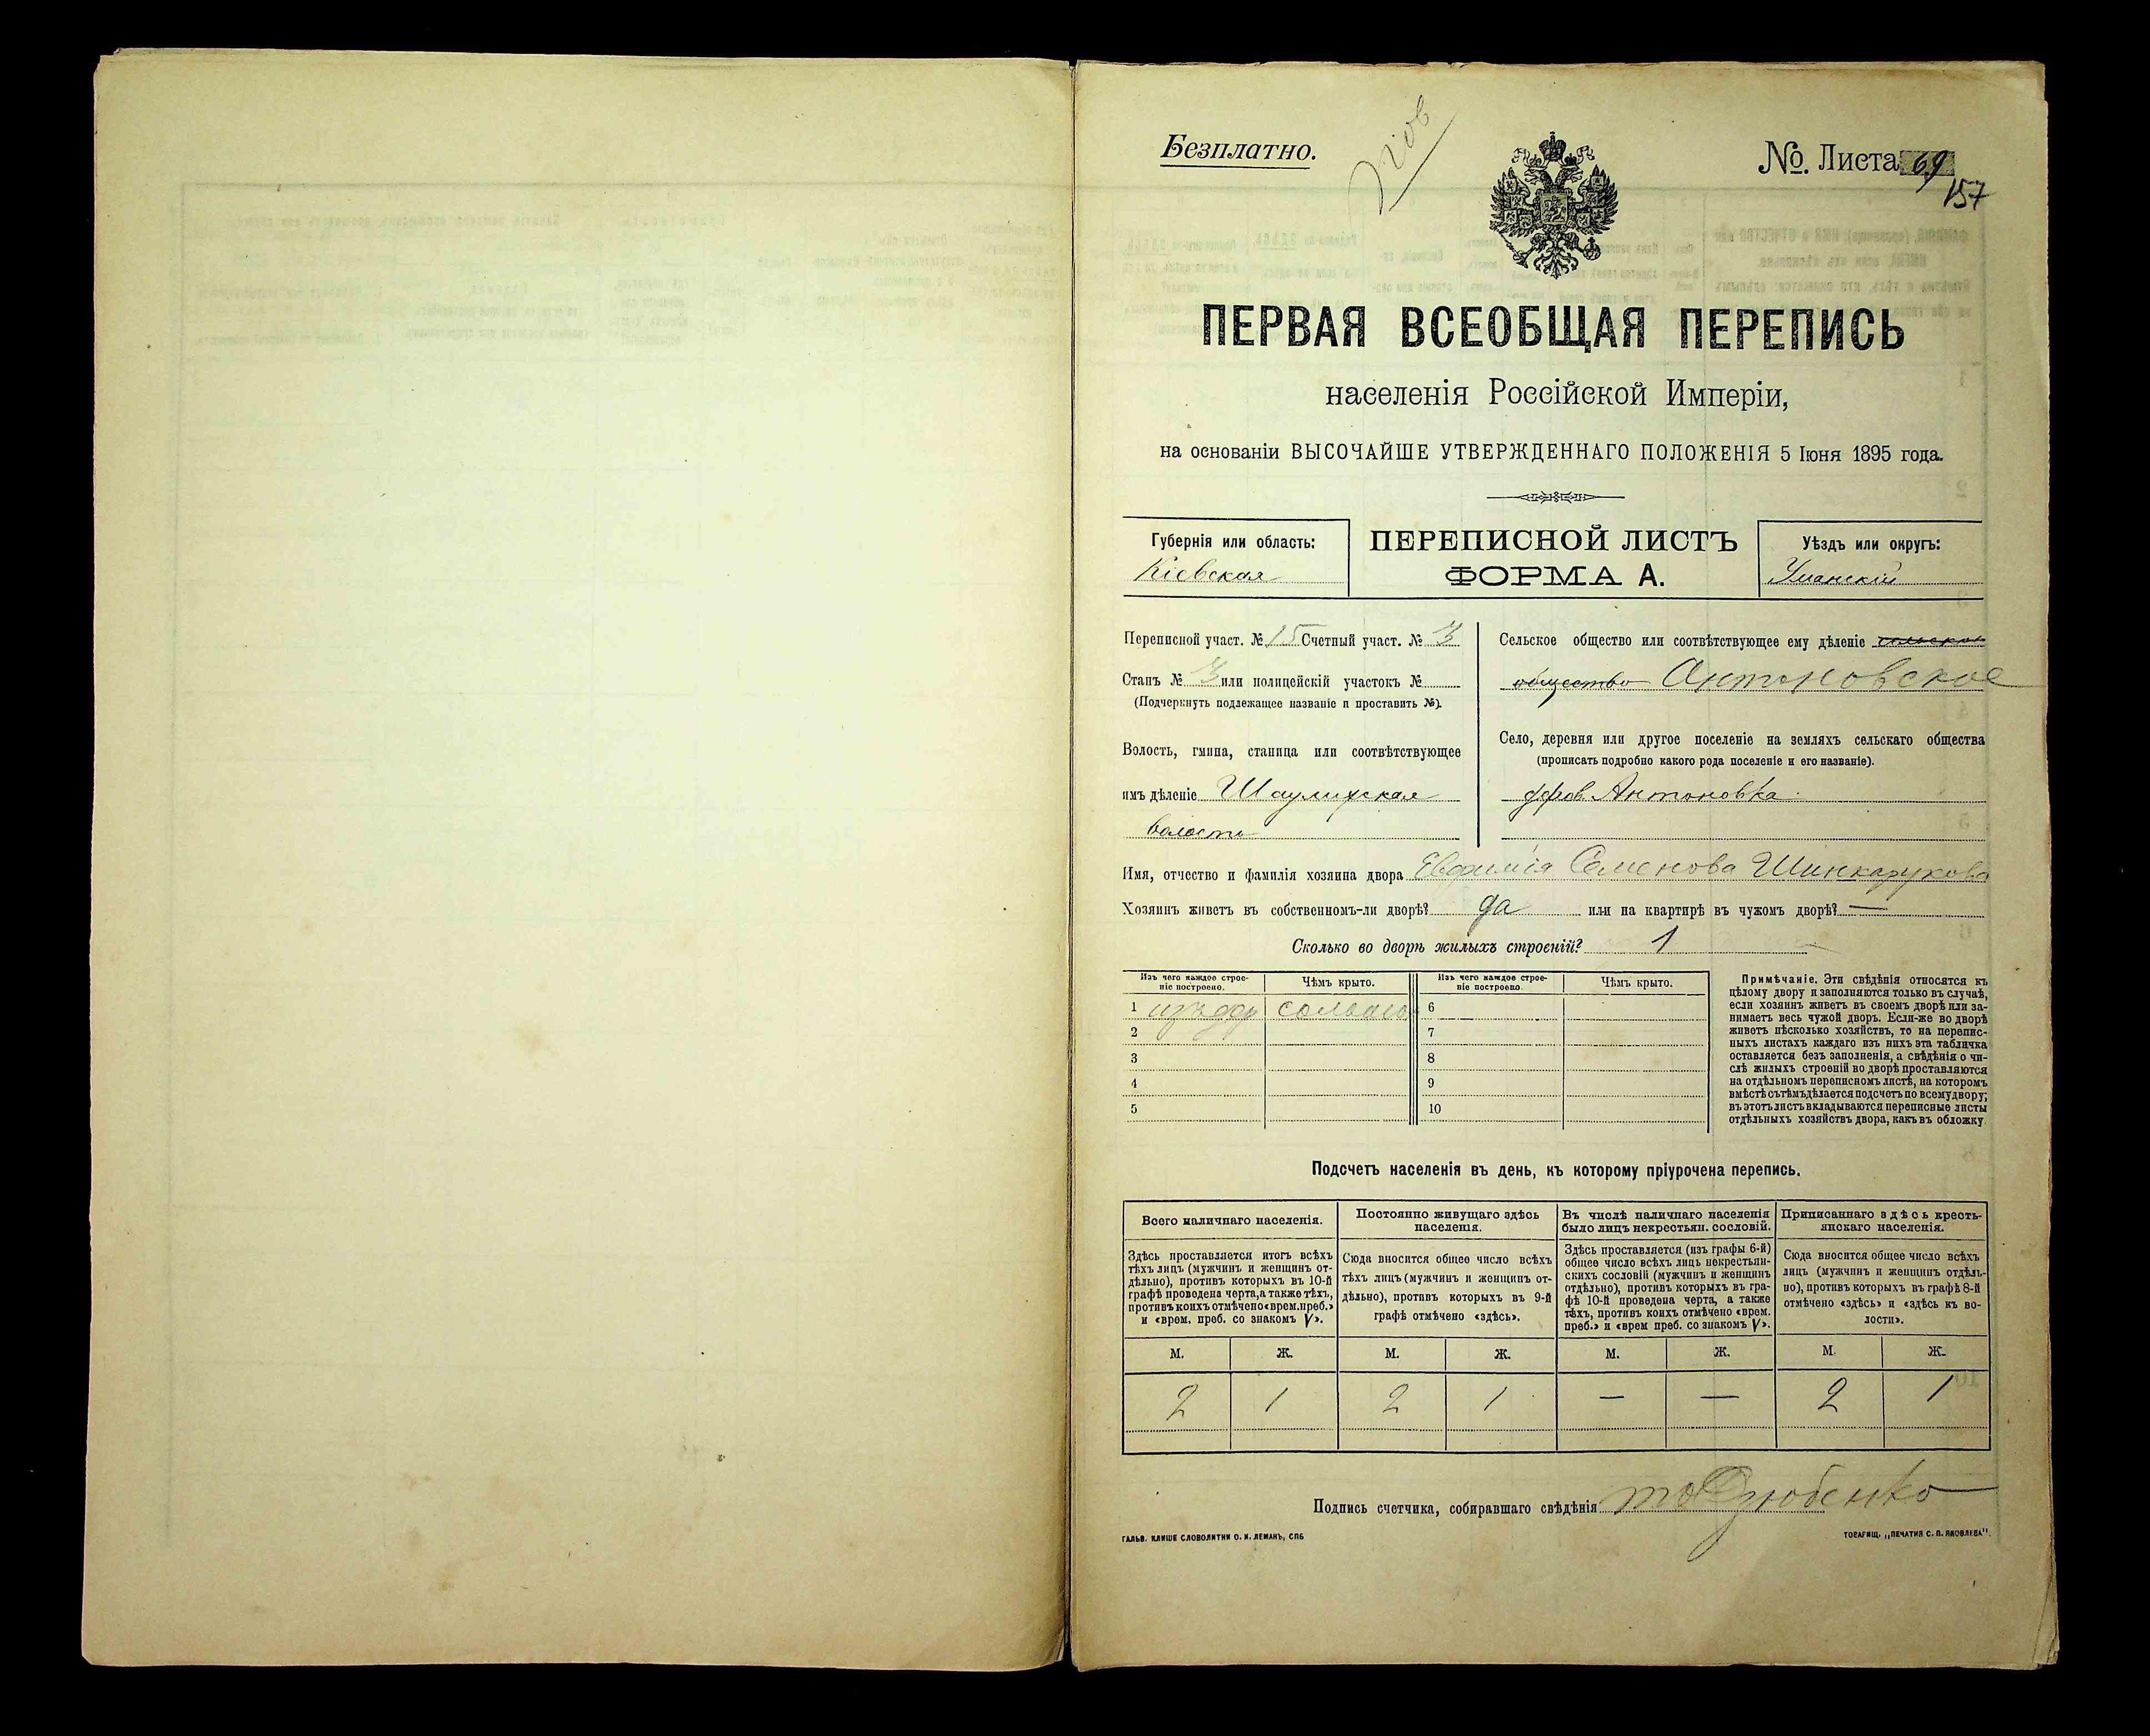 Безплатно.
№ Листа 69
157
ПЕРВАЯ ВСЕОБЩАЯ ПЕРЕПИСЬ
населенія Россійской Имперіи,
на основаніи ВЫСОЧАЙШЕ УТВЕРЖДЕННАГО ПОЛОЖЕНІЯ 5 Іюня 1895 года.
Губернія или область:
Кіевская
ПЕРЕПИСНОЙ ЛИСТЪ
ФОРМА А.
Уѣздъ или округъ:
Уманскій
Переписной участ. № 15 Счетный участ. № 3
Станъ № 3 или полицейскій участокъ №
(Подчеркнуть подлежащее названіе и проставить №).
Волость, гмина, станица или соотвѣтствующее
имъ дѣленіе Шаулихская
волость
Сельское общество или соотвѣтствующее ему дѣленіе сельское
общество Антоновское
Село, деревня или другое поселеніе на земляхъ сельскаго общества
(прописать подробно какого рода поселеніе и его названіе).
Антоновка
Имя, отчество и фамилія хозяина двора Евфимія Семенова Шинкарукова
Хозяинъ живетъ въ собственномъ-ли дворѣ? да или на квартирѣ въ чужомъ дворѣ? —
Сколько во дворѣ жилыхъ строеній? 1
Изъ чего каждое строе-
ніе построено.
Чѣмъ крыто.
Изъ чего каждое строе-
ніе построено.
Чѣмъ крыто.
1 соломою 6
2 7
3 8
4 9
5 10
Примѣчаніе. Эти свѣдѣнія относятся къ
цѣлому двору и заполняются только въ случаѣ,
если хозяинъ живетъ въ своемъ дворѣ или за-
нимаетъ весь чужой дворъ. Если-же во дворѣ
живетъ нѣсколько хозяйствъ, то на перепис-
ныхъ листахъ каждаго изъ нихъ эта табличка
оставляется безъ заполненія, а свѣдѣнія о чи-
слѣ жилыхъ строеній во дворѣ проставляются
на отдѣльномъ переписномъ листѣ, на которомъ
вмѣстѣ съ тѣмъ дѣлается подсчетъ по всему двору;
въ этотъ листъ вкладываются переписные листы
отдѣльныхъ хозяйствъ двора, какъ въ обложку.
Подсчетъ населенія въ день, къ которому пріурочена перепись.
Всего наличнаго населенія.
Здѣсь проставляется итогъ всѣхъ
тѣхъ лицъ (мужчинъ и женщинъ от-
дѣльно), противъ которыхъ въ 10-й
графѣ проведена черта, а также тѣхъ,
противъ коихъ отмѣчено «врем. преб.»
и «врем. преб. со знакомъ V».
Постоянно живущаго здѣсь
населенія.
Сюда вносится общее число всѣхъ
тѣхъ лицъ (мужчинъ и женщинъ от-
дѣльно), противъ которыхъ въ 9-й
графѣ отмѣчено «здѣсь».
Въ числѣ наличнаго населенія
было лицъ некрестьян. сословій.
Здѣсь проставляется (изъ графы 6-й)
общее число всѣхъ лицъ некрестьян-
скихъ сословій (мужчинъ и женщинъ
отдѣльно), противъ которыхъ въ гра-
фѣ 10-й проведена черта, а также
тѣхъ, противъ коихъ отмѣчено «врем.
преб.» и «врем преб. со знакомъ V».
Приписаннаго здѣсь кресть-
янскаго населенія.
Сюда вносится общее число всѣхъ
лицъ (мужчинъ и женщинъ отдѣль-
но), противъ которыхъ въ графѣ 8-й
отмѣчено «здѣсь» и «здѣсь къ во-
лости».
М. Ж. М. Ж. М. Ж. М. Ж.
2 1 2 1 — — 2 1
Подпись счетчика, собиравшаго свѣдѣнія Дзюбенко
ГАЛЬВ. КЛИШЕ СЛОВОЛИТНИ О. И. ЛЕМАНЪ, СПБ
ТОВАРИЩ. „ПЕЧАТНЯ С. П. ЯКОВЛЕВА".